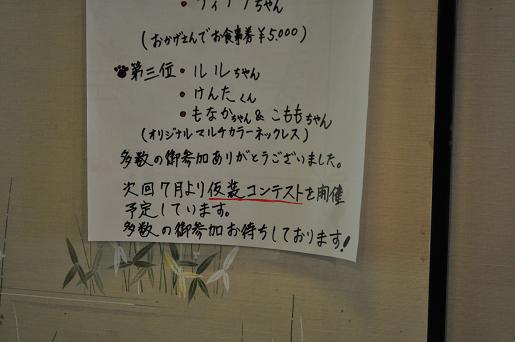 ちゃん
(おかげさんでお食事券¥5,000)
第三位・ルルちゃん
・けんたくん
・もなかちゃん&こももちゃん
(オリジナルマルチカラーネックレス)
多数の御参加ありがとうございました。
次回7月より仮装コンテストを開催
予定しています。
多数の御参加お待ちしております!